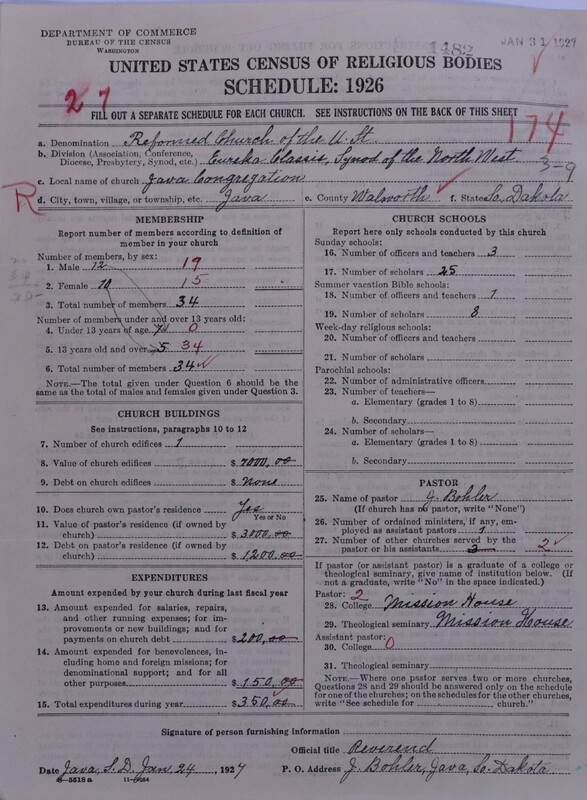 DEPARTMENT OF COMMERCE
BUREAU OF THE CENSUS
WASHINGTON
1482
JAN 31 1927
UNITED STATES CENSUS OF RELIGIOUS BODIES
SCHEDULE: 1926
27
FILL OUT A SEPARATE SCHEDULE FOR EACH CHURCH. SEE INSTRUCTIONS ON THE BACK OF THIS SHEET
174
a. Denomination Reformed Church of the U. St
b. Division (Association, Conference, Diocese, Presbytery, Synod, etc.) Eureka Classis, Synod of the North West
3-9
c. Local name of church Java Congregation
R
d. City, town, village, or township, etc. Java e. County Walworth f. State So. Dakota
MEMBERSHIP
Report number of members according to definition of
member in your church
Number of members, by sex:
1. Male 12 19
2. Female 10 15
3. Total number of members 34
Number of members under and over 13 years old:
4. Under 13 years of age 0
5. 13 years old and over 34
6. Total number of members 34
NOTE.—The total given under Question 6 should be the
same as the total of males and females given under Question 3.
CHURCH BUILDINGS
See instructions, paragraphs 10 to 12
7. Number of church edifices 1
8. Value of church edifices $ 7000.00
9. Debt on church edifices $ None
10. Does church own pastor's residence Yes
Yes or No
11. Value of pastor's residence (if owned by
church) $ 3000.00
12. Debt on pastor's residence (if owned by
church) $ 1200.00
EXPENDITURES
Amount expended by your church during last fiscal year
13. Amount expended for salaries, repairs,
and other running expenses; for im-
provements or new buildings; and for
payments on church debt $ 200.00
14. Amount expended for benevolences,
including home and foreign missions; for
denominational support; and for all
other purposes $ 150.00
15. Total expenditures during year $ 350.00
CHURCH SCHOOLS
Report here only schools conducted by this church
Sunday schools:
16. Number of officers and teachers 3
17. Number of scholars 25
Summer vacation Bible schools:
18. Number of officers and teachers 1
19. Number of scholars 8
Week-day religious schools:
20. Number of officers and teachers
21. Number of scholars
Parochial schools:
22. Number of administrative officers
23. Number of teachers—
a. Elementary (grades 1 to 8)
b. Secondary
24. Number of scholars—
a. Elementary (grades 1 to 8)
b. Secondary
PASTOR
25. Name of pastor J. Bohler
(If church has no pastor, write "None")
26. Number of ordained ministers, if any, em-
ployed as assistant pastors 1
27. Number of other churches served by the
pastor or his assistants 3 2
If pastor (or assistant pastor) is a graduate of a college or
theological seminary, give name of institution below. (If
not a graduate, write "No" in the space indicated.)
Pastor: 2
28. College Mission House
29. Theological seminary Mission House
Assistant pastor:
30. College 0
31. Theological seminary
NOTE.—Where one pastor serves two or more churches,
Questions 28 and 29 should be answered only on the schedule
for one of the churches; on the schedules for the other churches,
write "See schedule for church."
Signature of person furnishing information
Official title Reverend
Date Java, S.D. Jan 24, 1927 P. O. Address J. Bohler, Java, So. Dakota
8—5518 a